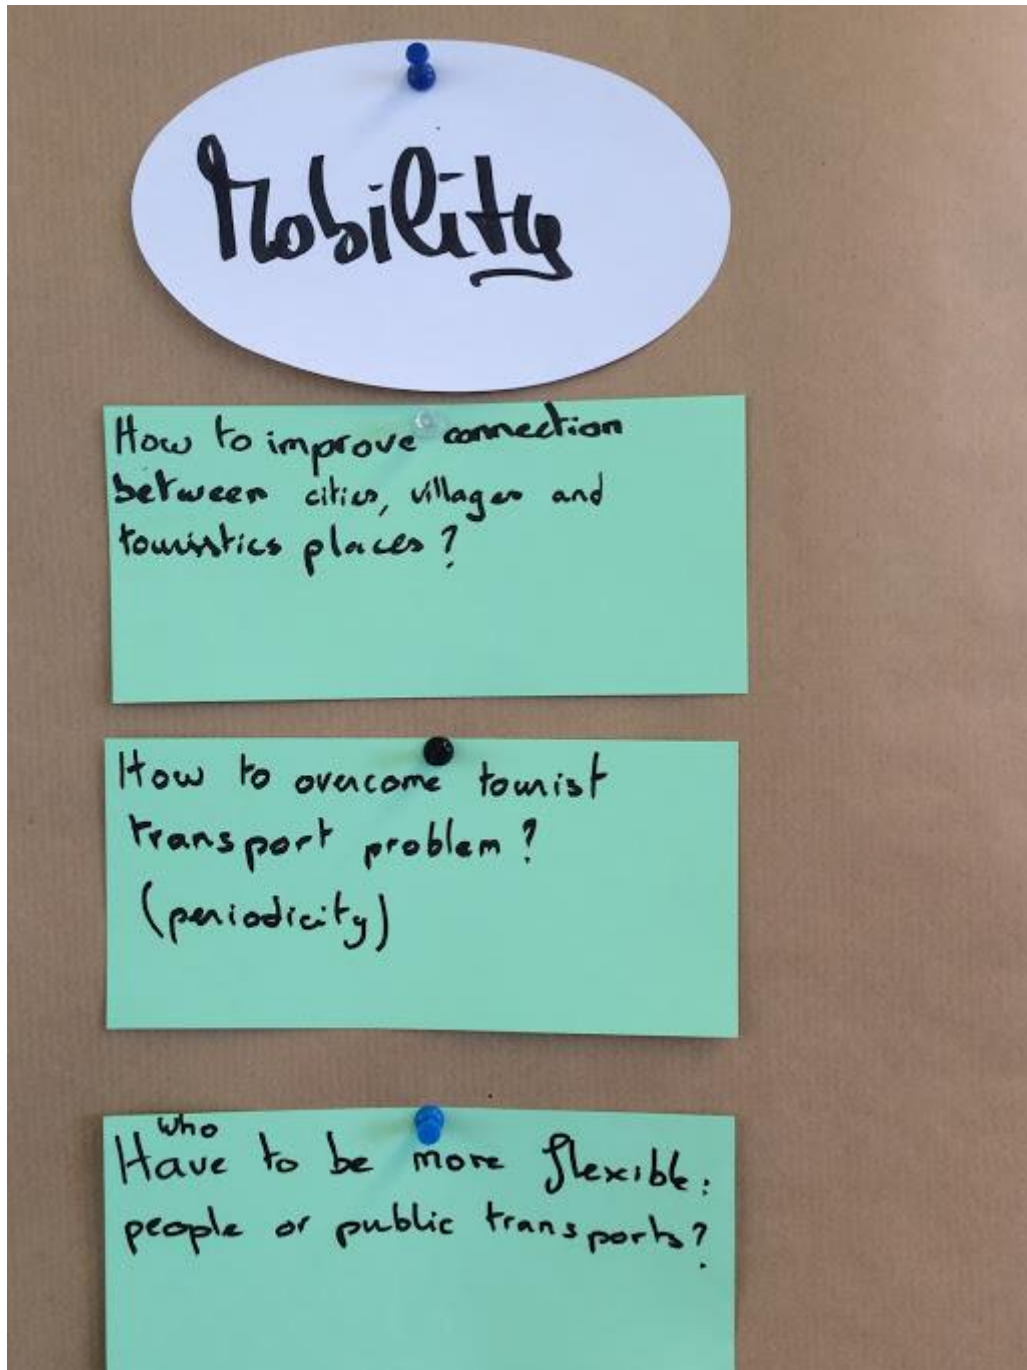 Mobility
How to improve connection
between cities, villages and
touristics places?
How to overcome tourist
transport problem?
(periodicity)
who
Have to be more flexible:
people or public transports?